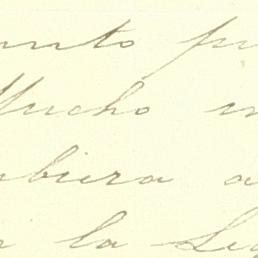 unto pu
Mucho m
ubiera a
la Seg